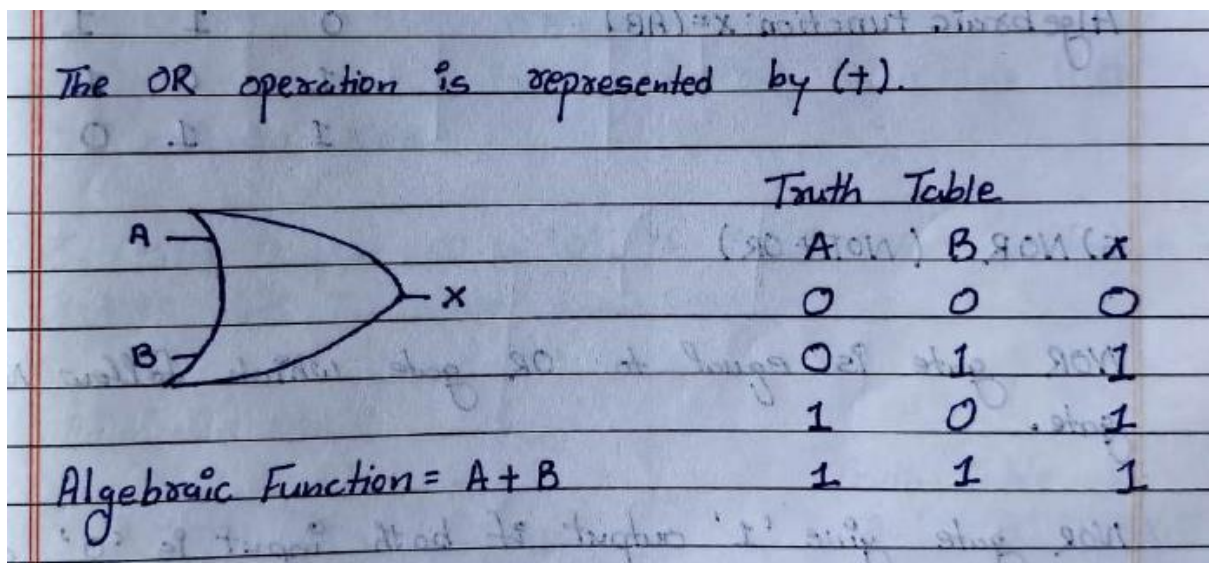 The OR operation is represented by (+).
Truth Table
A
B
X
A B X
0 0 0
0 1 1
1 0 1
1 1 1
Algebraic Function = A + B